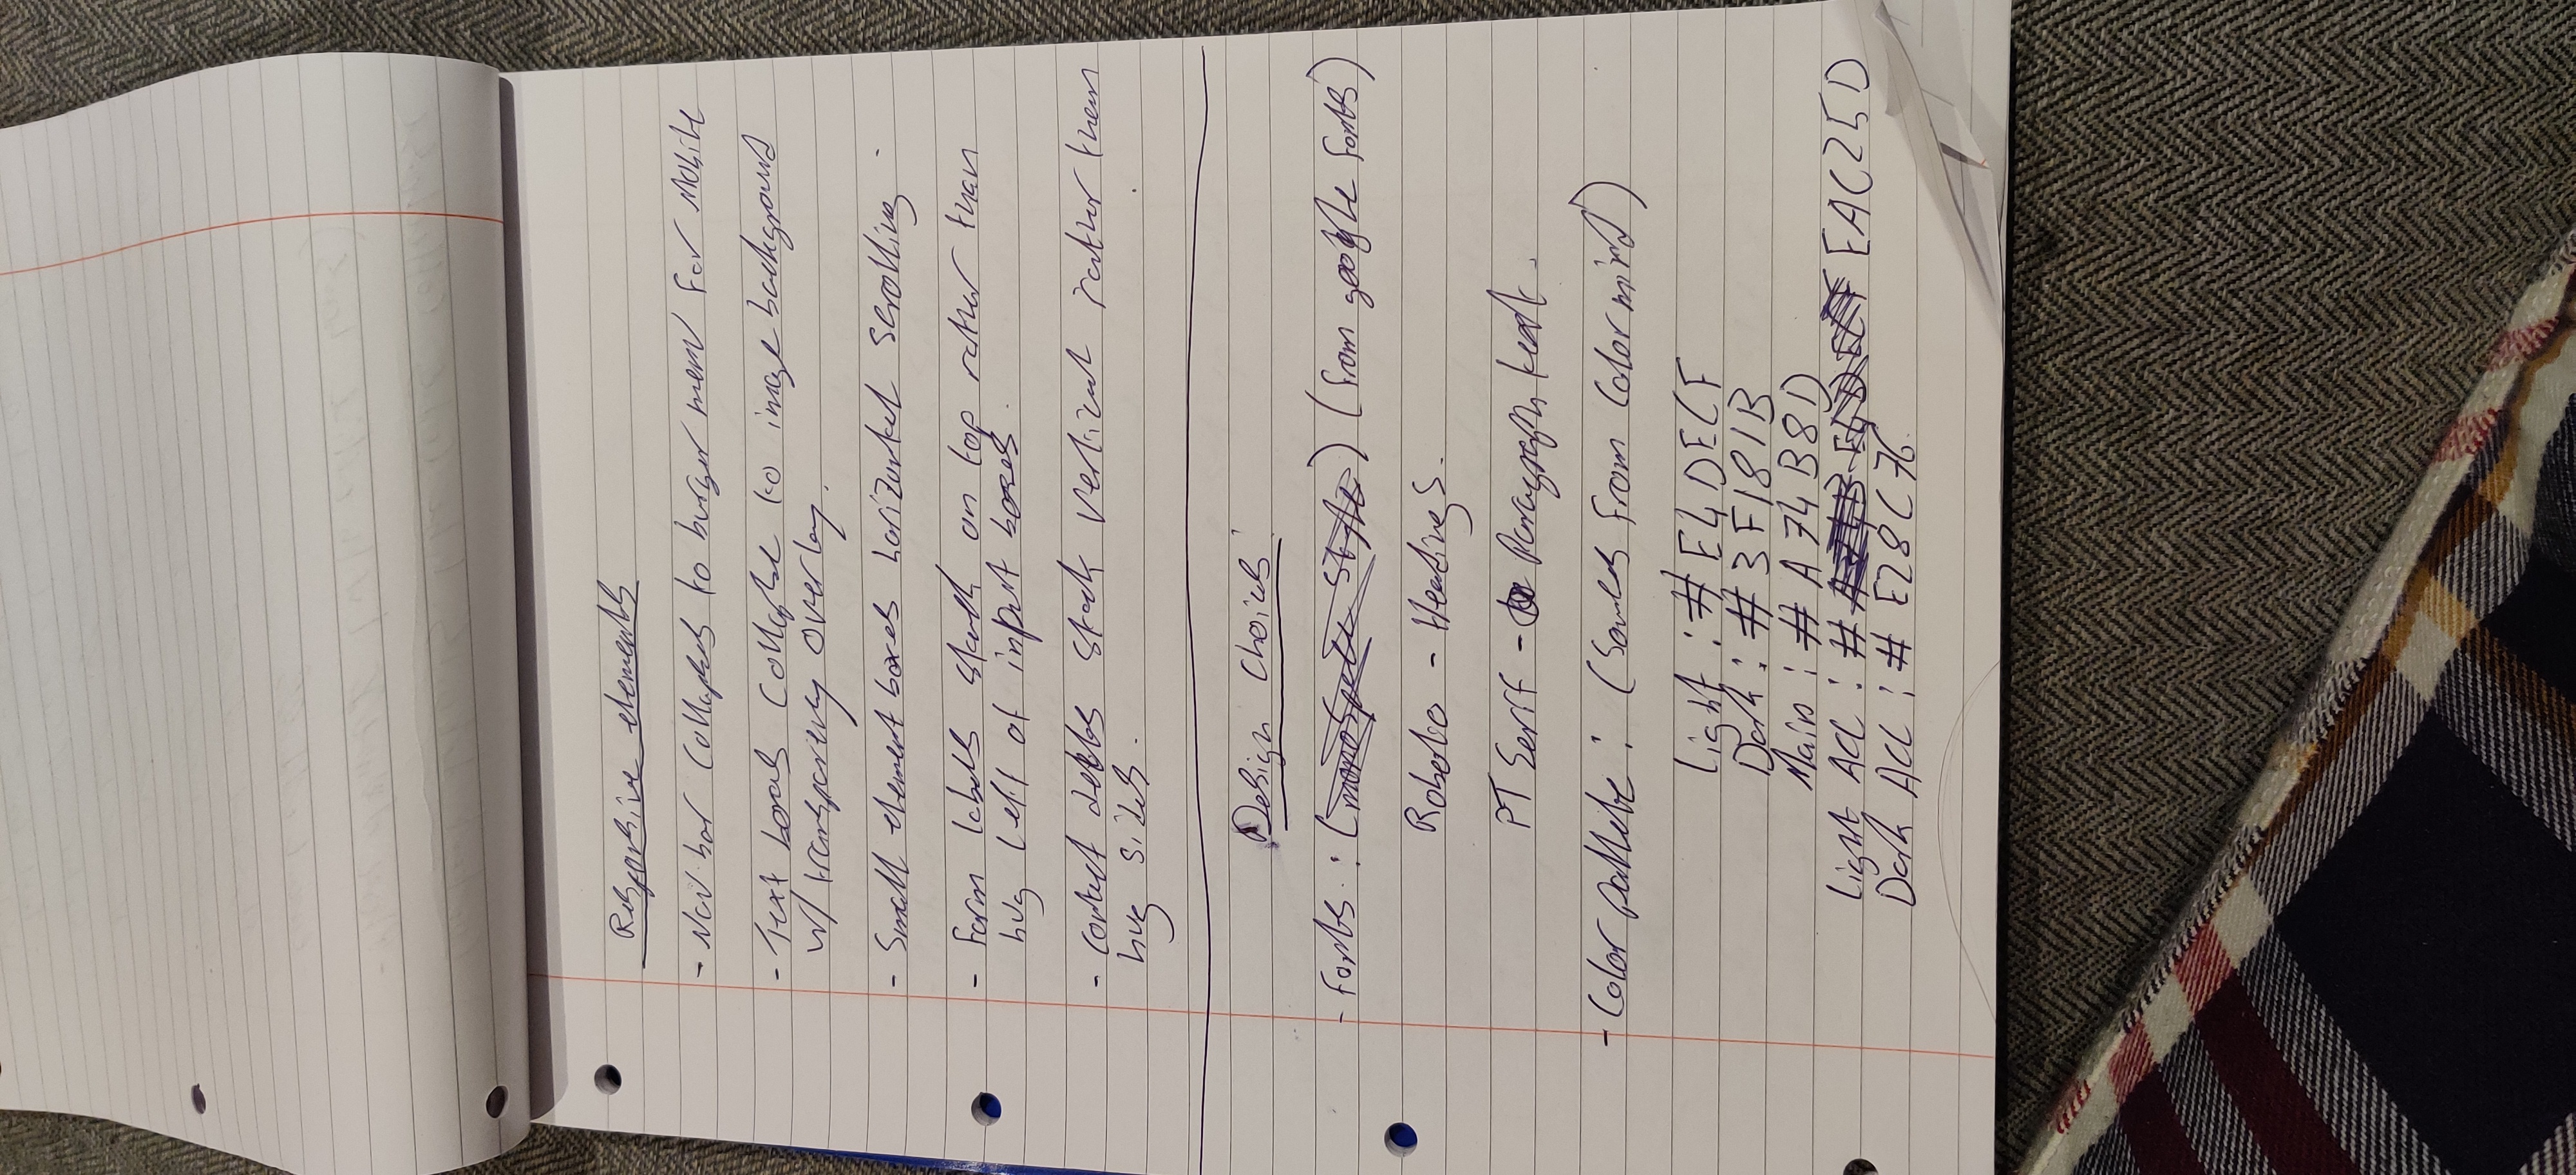 Responsive elements
- Nav bar collapses to burger menu for Mobile
- Text boxes collapse to image background
w/ transparency overlay.
- Small element boxes horizontal scrolling
- Form labels stack on top rather than
hug left of input boxes.
- contact details stack vertical rather than
hug sides.
Design Choices
- Fonts : (monospace style) (from google fonts)
Roboto - Headings.
PT Serif - Paragraph text.
- Color pallete : (Sources from Colormind)
Light : # E4DECF
Dark : # 3F181B
Main : # A74B8D
Light Acc : # EAC25D
Dark Acc : # E28C76